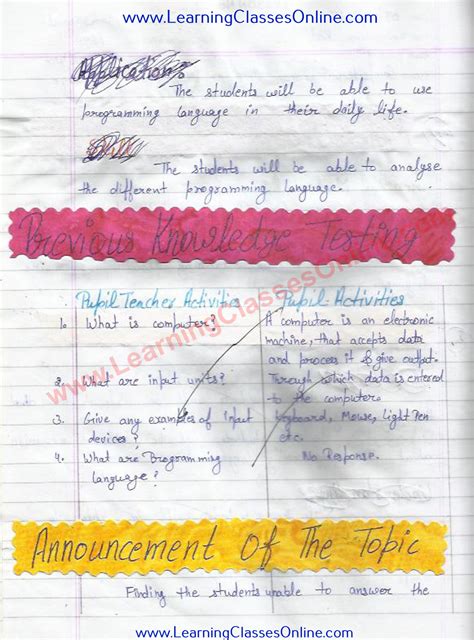 www.LearningClassesOnline.com
Application :
The students will be able to use
programming language in their daily life.
The students will be able to analyse
the different programming language.
Previous Knowledge Testing
Pupil Teacher Activities
Pupil Activities
1. What is computer?
A computer is an electronic
machine, that accepts data
and process it & give output.
2. What are input units?
Through which data is entered
to the computer.
3. Give any examples of input
devices?
Keyboard, Mouse, Light Pen
etc.
4. What are Programming
language?
No Response.
www.LearningClassesOnline.com
Announcement Of The Topic
Finding the students unable to answer the
www.LearningClassesOnline.com